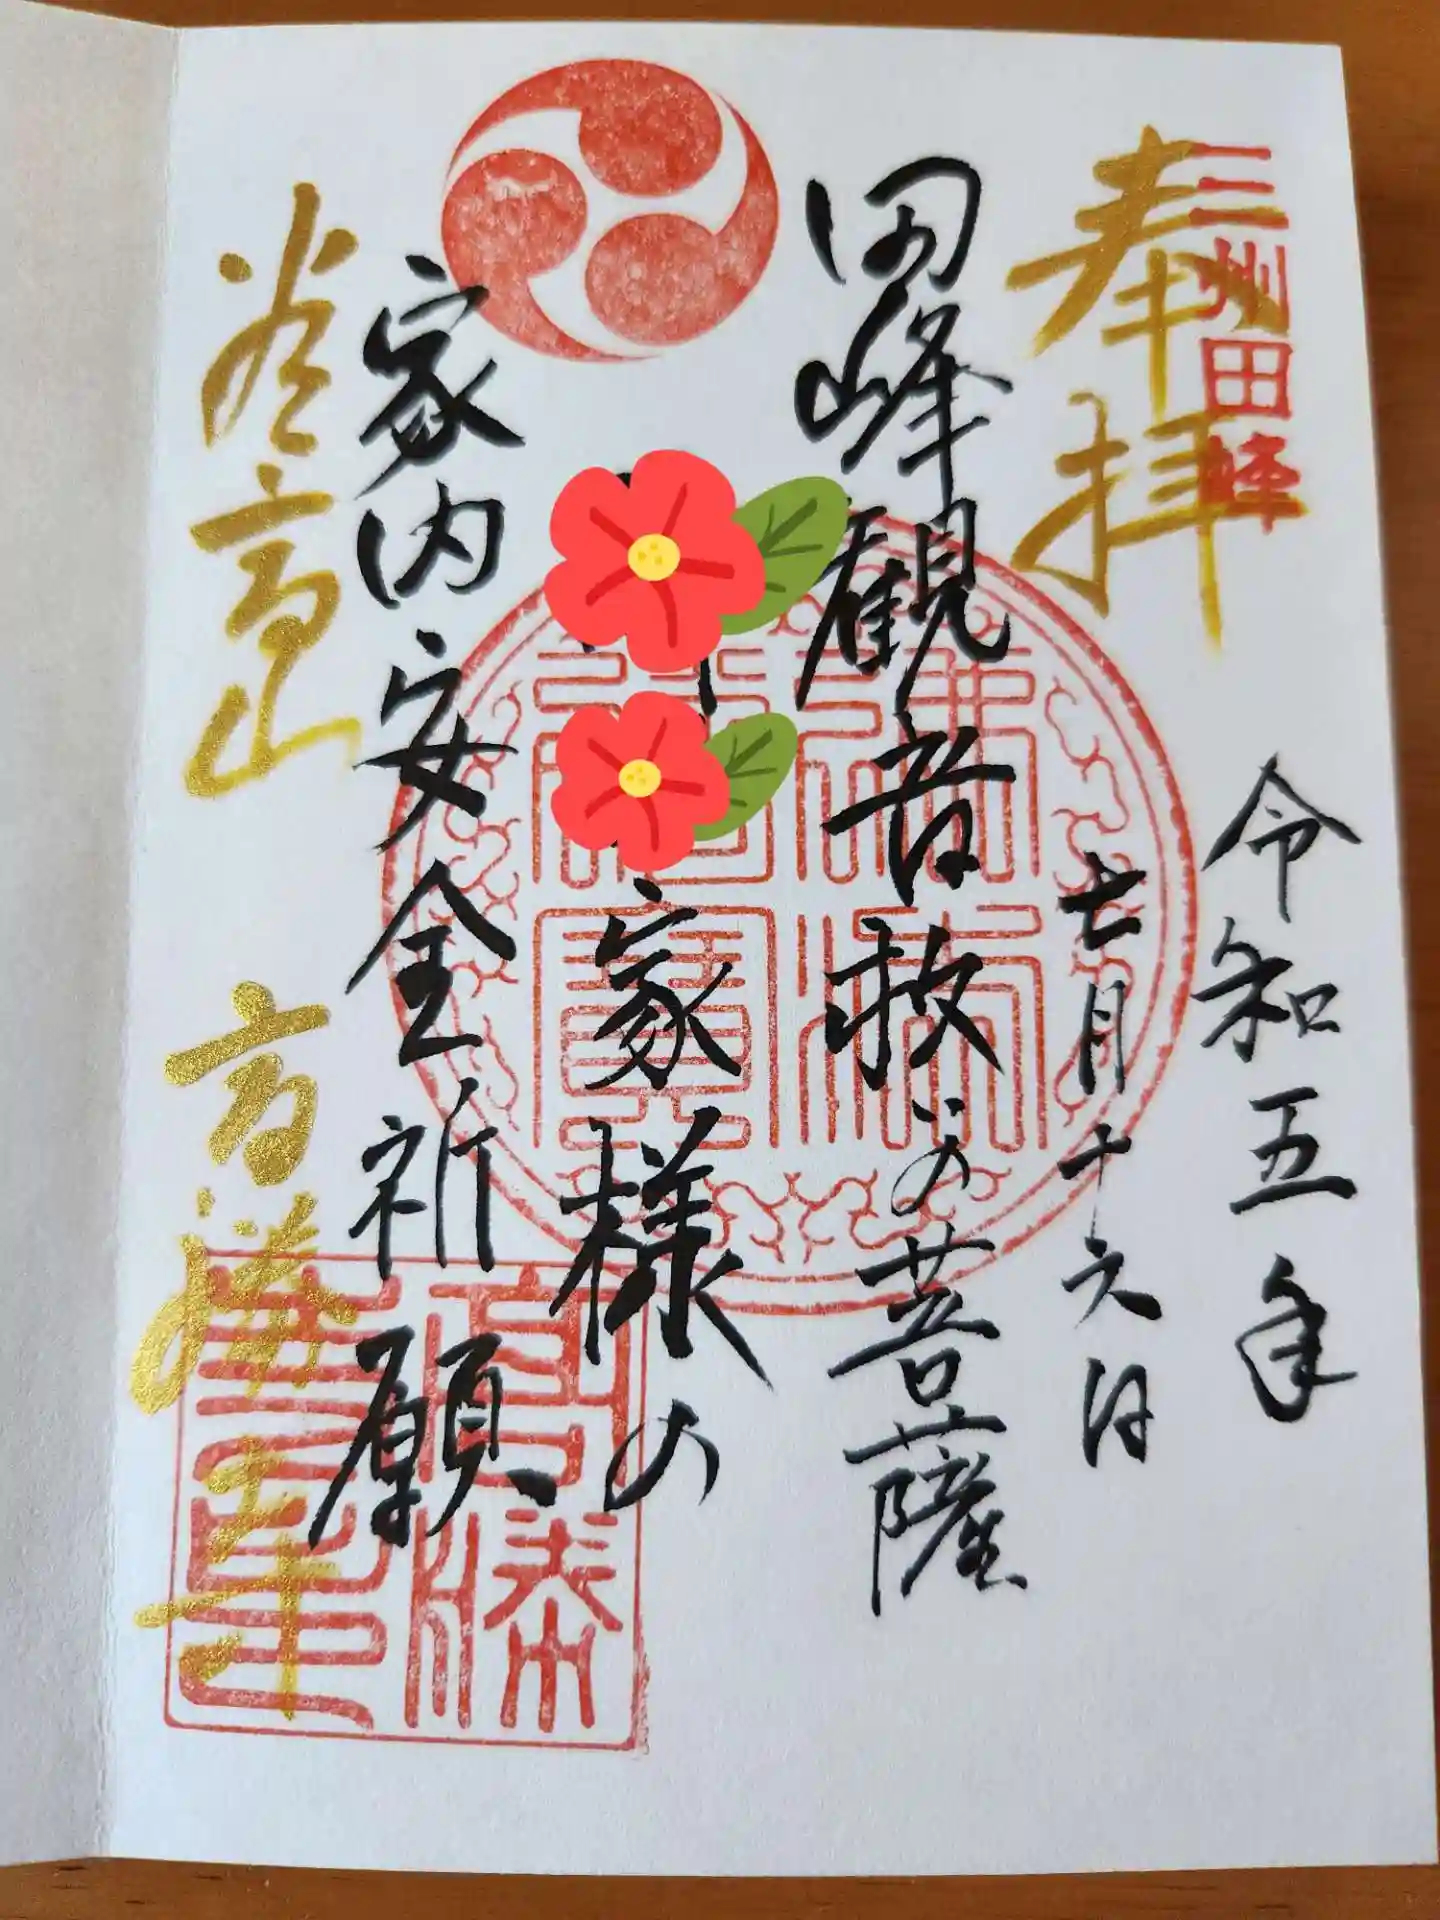 三州田峰
奉拝
令和五年
七月十六日
田峰観音救いの菩薩
家様の
家内安全祈願
谷高山
高勝寺
高勝